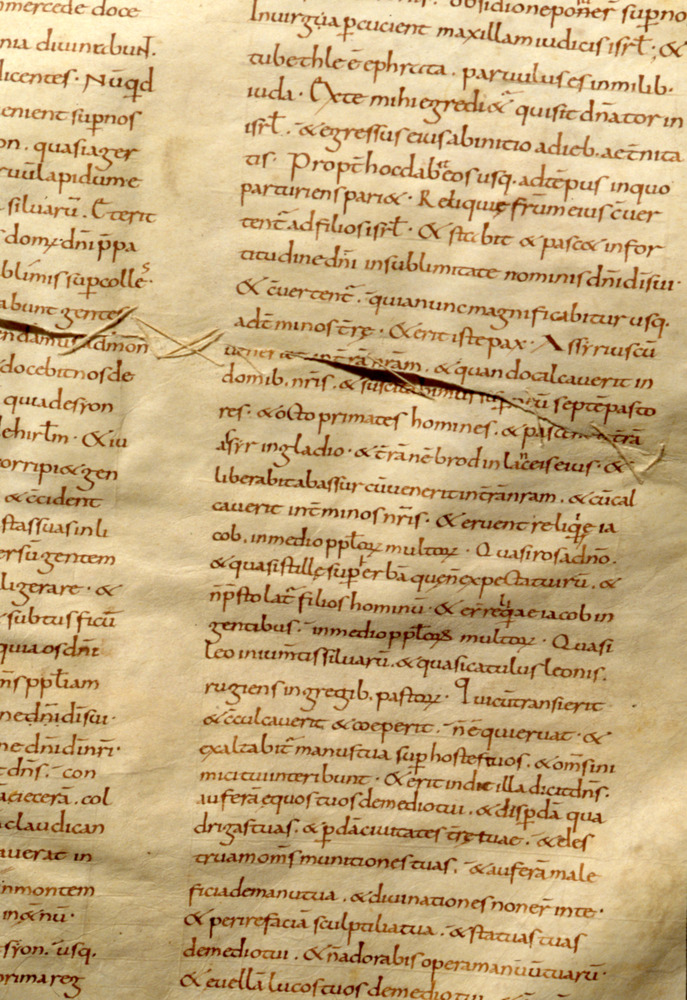 mercede doce
nia diuinabun̄.
dicentes. Nūqd
uenient sup nos
on. quasi ager
ruū lapidum e
siluarū. Et erit
s domꝰ dn̄i p̄pa
blimis sup colleˢ.
abunt gentes
endamus ad mon
docebit nos de
quia de syon
de hirłm. & iu
corripi& gen
& c̄cident
stas suas in li
ersū gentem
lligerare. &
subtus ficū
quia os dn̄i
n̄s ppłi am
ne dn̄i di sui.
ne dn̄i di nr̄i.
t dn̄s. con
ā eiecerā. col
claudican
auerat in
in montem
in & nū.
syon. usq.
prima reg
obsidione poner̄ sup no
In uirga pcucient maxillam iudicis isrł; &
tu bethleē ephrata. paruulus es in milib.
iuda. Ex te mihi egredi&ʳ qui sit dn̄ator in
isrł. & egressus eius ab initio a dieb. aet̄nita
tis. Propt̄ hoc dabit eos usq. ad tēpus in quo
parturiens pari&. Reliquię fr̄um eius c̄uer
tent̄ ad filios isrł. & stabit & pasc& in for
titudine dn̄i in sublimitate nominis dn̄i di sui.
& c̄uertent̄. quia nunc magnificabitur usq.
ad t̄minos t̄rę. & erit iste pax. Assyrius cū
uenerit in t̄rā nr̄am. & quando calcauerit in
domib. nr̄is. & suscitabimus sup eū septē pasto
res. & octo primates homines. & pascent t̄rā
assyr in gladio. & t̄rā nēbrod in lanceis eius. &
liberabit ab assur cū uenerit in t̄rā nr̄am. & cū cal
cauerit in t̄minos nr̄is. & eruent reliqię ia
cob. in medio ppłoꝝ multoꝝ. Quasi ros a dn̄o.
& quasi stillę super herbā quę n̄ expectat uirū. &
n̄ pstolat̄ filios hominū. & er̄ reliqae iacob in
gentibus. in medio ppłoꝝ multoꝝ. Quasi
leo in ium̄tis siluarū. & quasi catulus leonis.
rugiens in gregib. pastoꝝ. Qui cū transierit
& c̄culcauerit & coeperit. n̄ ē qui eruat. &
exaltabit̄ manus tua sup hostes tuos. & om̄s ini
mici tui interibunt. & erit in die illa dicit dn̄s.
auferā equos tuos de medio tui. & disp̄dā qua
drigas tuas. & p̄dā ciuitates t̄rę tuae. & des
truam om̄s munitiones tuas. & auferā male
ficia de manu tua. & diuinationes non er̄ in te.
& perire faciā sculptilia tua. & statuas tuas
de medio tui. & n̄ adorabis opera manuū tuarū.
& euellā lucos tuos de medio tui